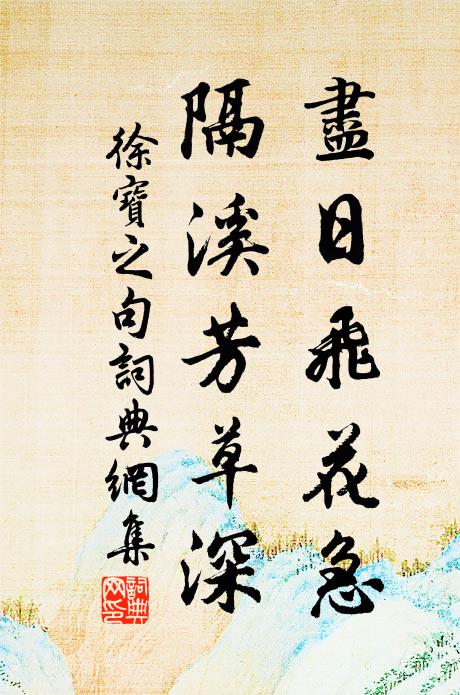 盡日飛花急
隔溪芳草深
徐寶之句詞典網集
詞典